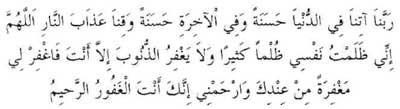 رَبَّنَا آتِنَا فِي الدُّنْيَا حَسَنَةً وَفِي الْآخِرَةِ حَسَنَةً وَقِنَا عَذَابَ النَّارِ اَللَّهُمَّ
إِنِّي ظَلَمْتُ نَفْسِي ظُلْمًا كَثِيرًا وَلَا يَغْفِرُ الذُّنُوبَ إِلَّا أَنْتَ فَاغْفِرْ لِي
مَغْفِرَةً مِنْ عِنْدِكَ وَارْحَمْنِي إِنَّكَ أَنْتَ الْغَفُورُ الرَّحِيمُ